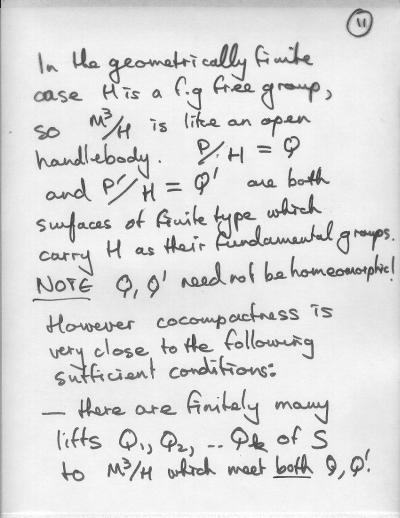 11
In the geometrically finite
case H is a f.g free group,
so M³/H is like an open
handlebody. P/H = Q
and P'/H = Q' are both
surfaces of finite type which
carry H as their fundamental groups.
NOTE Q, Q' need not be homeomorphic!
However cocompactness is
very close to the following
sufficient conditions:
— there are finitely many
lifts Q₁, Q₂, .. Qk of S
to M³/H which meet both Q, Q'.